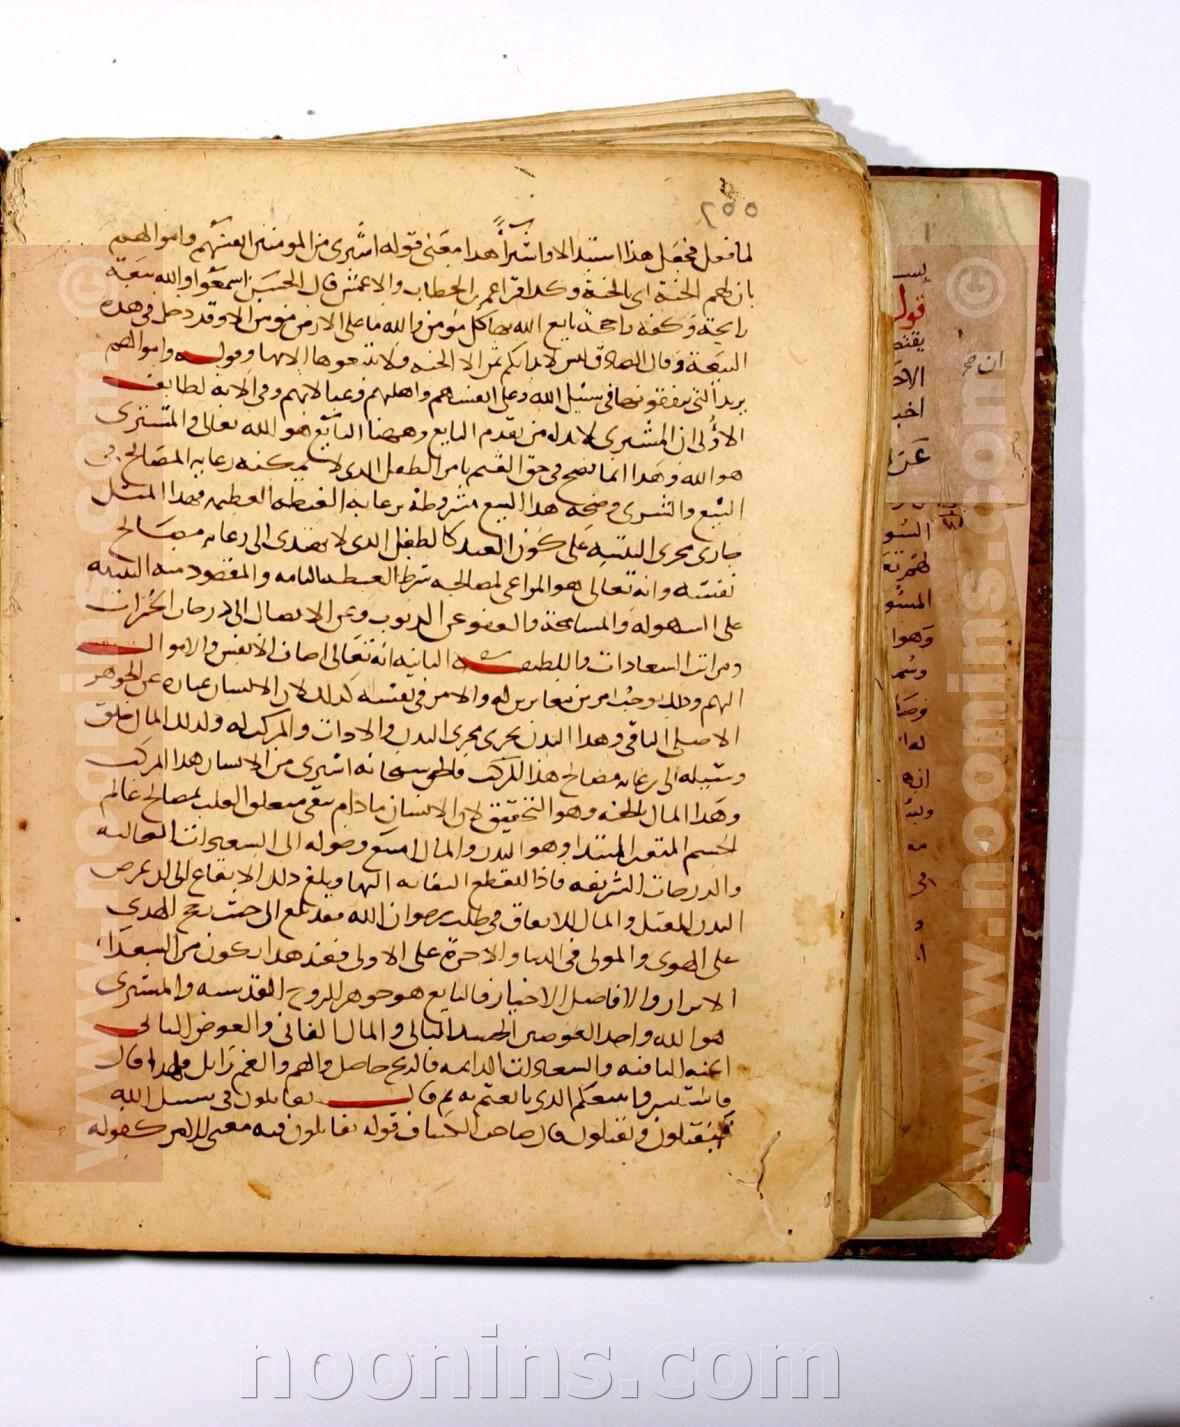 ٢٥٥
لما فعل فجعل هذا استبدالا وشراً هذا معنى قوله اشترى من المومنين انفسهم واموالهم
بان لهم الجنة اى بالجنة وكذا قرا عمر بن الخطاب والاعمش قال الحسن اسمعوا والله بيعة
رابحة وكفة راجحة بايع الله بها كل مومن والله ما على الارض مومن الا وقد دخل فى هذه
البيعة وقال الصادق ليس لابدانكم ثمن الا الجنة فلا تبيعوها الا بها وقوله واموالهم
يريد التى ينفقونها فى سبيل الله وعلى انفسهم واهليهم وعيالاتهم وفى الايه لطايف
الاولى ان المشترى لا بد له من تقدم البايع وههنا البايع هو الله تعالى والمشترى
هو الله وهذا انما تصح فى حق القيم بامر الطفل الذى لا يمكنه رعايه المصالح فى
البيع والشرى وصحه هذا البيع مشروطة برعايه الغبطه العظيمه فهذا المثل
جارى مجرى التنبيه على كون العبد كالطفل الذى لا يهتدى الى رعايه مصالح
نفسه وانه تعالى هو المراعى لمصالحه بشرط الغبطه التامه والمقصود منه التنبيه
على السهوله والمسامحة والعفو عن الذنوب وعن الايصال الى درجات الخيرات
ومراتب السعادات واللطيفه الثانيه انه تعالى اضاف الانفس والاموال
اليهم وذلك يوجب امرين مغايرين له والامر فى نفسه كذلك لان الانسان عباره عن الجوهر
الاصلى الباقى وهذا البدن يجرى مجرى البدن والادوات والمركب له وكذلك المال خلق
وسيله الى رعايه مصالح هذا المركب فالحق سبحانه اشترى من الانسان هذا المركب
وهذا المال بالجنة وهو التحقيق لان الانسان ما دام يبقى متعلق القلب بمصالح عالم
الجسم المتغير المتبدل وهو البدن والمال امتنع وصوله الى السعادات العاليه
والدرجات الشريفه فاذا انقطع التفاته اليها وبلغ ذلك الانقطاع الى ان عرض
البدن للقتل والمال للانفاق فى طلب رضوان الله فقد بلغ الى حيث رجح الهدى
على الهوى والمولى على الدنيا والاخرة على الاولى فعند هذا يكون من السعداء
الابرار والافاضل الاخيار فالبايع هو جوهر الروح القدسيه والمشترى
هو الله واحد العوضين الجسد البالى والمال الفانى والعوض الثانى
الجنه الباقيه والسعادات الدايمه فالربح حاصل والهم والغم زايل ولهذا قال
فاستبشروا ببيعكم الذى بايعتم به ثم قال يقاتلون فى سبيل الله
فيقتلون ويقتلون قال صاحب الكشاف قوله يقاتلون فيه معنى الامر كقوله
قول
الاد
اخبر
عن
السو
المسو
وهوا
www.noonins.com ©
www.noonins.com ©
noonins.com